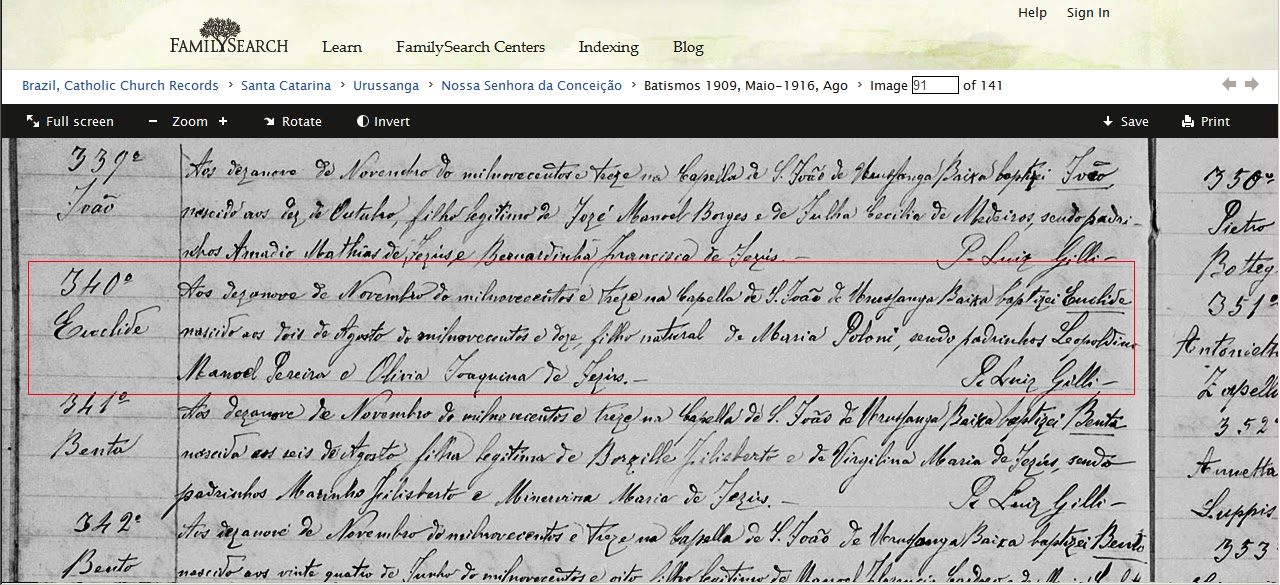 Help Sign In
FAMILYSEARCH Learn FamilySearch Centers Indexing Blog
Brazil, Catholic Church Records › Santa Catarina › Urussanga › Nossa Senhora da Conceição › Batismos 1909, Maio-1916, Ago › Image 91 of 141
Full screen − Zoom + Rotate Invert Save Print
339º
João
Aos dezanove de Novembro do milnovecentos e treze na Capella de S. João de Urussanga Baixa baptizei João
nascido aos dez de Outubro, filho legitimo de Jozé Manoel Borges e de Julha Cecilia de Medeiros, sendo padri-
nhos Amadio Mathias de Jezús, e Bernardinha Francisca de Jezús. — P. Luiz Gilli —
340º
Euclide
Aos dezanove de Novembro do milnovecentos e treze na Capella de S. João de Urussanga Baixa baptizei Euclide
nascido aos dois de Agosto do milnovecentos e doze, filho natural de Maria Poloni, sendo padrinhos Leopoldino
Manoel Pereira e Olivia Joaquina de Jezús. — P. Luiz Gilli —
341º
Benta
Aos dezanove de Novembro do milnovecentos e treze na Capella de S. João de Urussanga Baixa baptizei Benta
nascida aos seis de Agosto filha legitima de Filisberto e de Virgilina Maria de Jezús, sendo
padrinhos Marinho Filisberto e Minervina Maria de Jezús. — P. Luiz Gilli —
342º
Bento
Aos dezanove de Novembro do milnovecentos e treze na Capella de S. João de Urussanga Baixa baptizei Bento
nascido aos vinte quatro de Junho do milnovecentos e oito filho legitimo de Manoel
350º
Pietro
Botteg
351º
Antonieth
Zapelli
352º
Annetta
Luppis
353